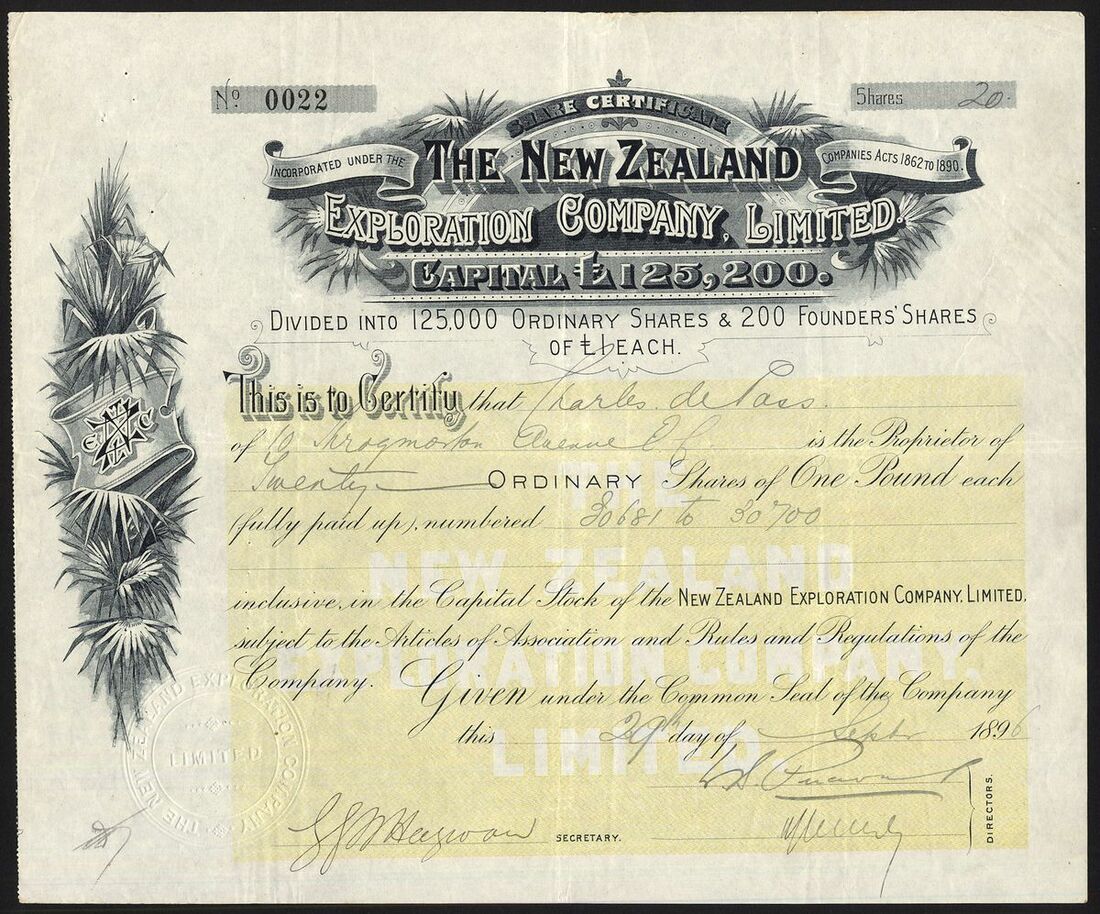 Nº 0022
Shares 20.
SHARE CERTIFICATE
INCORPORATED UNDER THE
COMPANIES ACTS 1862 TO 1890.
THE NEW ZEALAND
EXPLORATION COMPANY, LIMITED.
CAPITAL £125,200.
DIVIDED INTO 125,000 ORDINARY SHARES & 200 FOUNDERS' SHARES
OF £1 EACH.
This is to Certify that Charles de Pass.
of Throgmorton Avenue E C is the Proprietor of
Twenty ORDINARY Shares of One Pound each
(fully paid up), numbered 30681 to 30700
inclusive, in the Capital Stock of the NEW ZEALAND EXPLORATION COMPANY, LIMITED,
subject to the Articles of Association and Rules and Regulations of the
Company. Given under the Common Seal of the Company
this 29th day of Septr 1896
SECRETARY.
DIRECTORS.
THE
NEW ZEALAND
EXPLORATION COMPANY,
LIMITED.
THE NEW ZEALAND EXPLORATION COMPANY
LIMITED